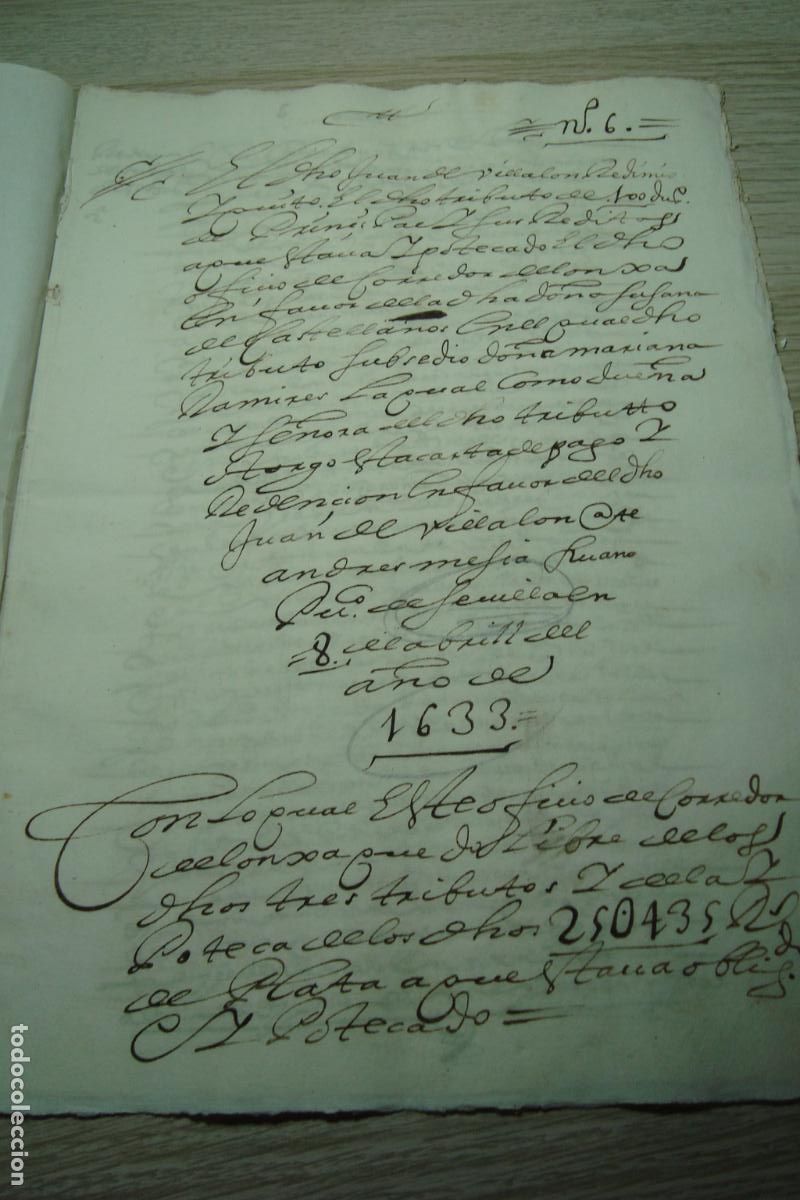 nº. 6.
El dho Juan de Villalon Redimio
Y quito. El dho tributo de 100 duos.
de Prinçipal Y sus Reditos
a que estava Ypotecado El dho
ofiçio de Corredor de lonxa
En favor de la dha doña susana
de Castellanos En el qual dho
tributo subsedio doña mariana
Ramires La qual Como dueña
Y señora del dho tributto
otorgo esta carta de pago Y
Redencion En favor del dho
Juan de Villalon ante
andres mesia
puco. de sevilla En
8. de abrill del
año de
1633.
Con Lo qual Este ofiçio de Corredor
de lonxa quedo Libre de los
dhos tres tributos Y de la Y
Poteca de los dhos 250435 Rs
de Plata a que estava oblig.do
e YPotecado
todocoleccion